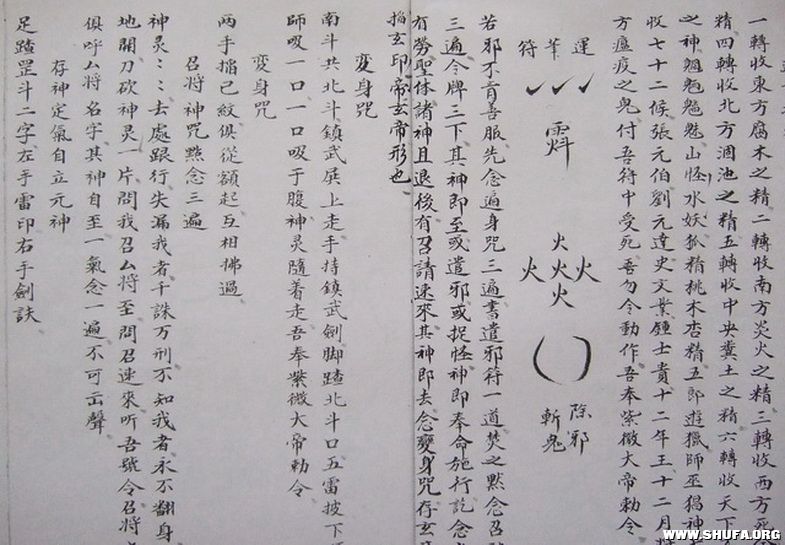 一轉收東方腐木之精二轉收南方炎火之精三轉收西方死金
精四轉收北方涸池之精五轉收中央糞土之精六轉收天下
之神魈魁魑魅山怪水妖狐精桃木杏精五郎遊獵師巫猖神
收七十二候張元伯劉元達史文業鍾士貴十二年王十二月將
方瘟疫之鬼付吾符中受死吾勿令動作吾奉紫微大帝勅令
運
筆
符
火
火火火
火
除邪
斬鬼
若邪不肯善服先念遍身咒三遍書遣邪符一道焚之黙念召
三遍令牌三下其神即至或遣邪或捉怪神即奉命施行訖念
有勞聖休諸神且退後有召請速來其神即去念變身咒存玄
掐玄印帝玄帝形也
變身咒
南斗共北斗鎮武展上走手持鎮武劍脚踏北斗口五雷披下
師吸一口一口吸于腹神灵隨着走吾奉紫微大帝勅令
變身咒
兩手掐己紋俱從額起互相拂過
召將神咒黙念三遍
神灵〻〻去處跟行失漏我者千誅万刑不知我者永不翻身
地開刀砍神灵一片問我召厶將至問召速來听吾號令召將
俱呼厶將名字其神自至一氣念一遍不可出聲
存神定氣自立元神
足踏罡斗二字左手雷印右手劍訣
WWW.SHUFA.ORG